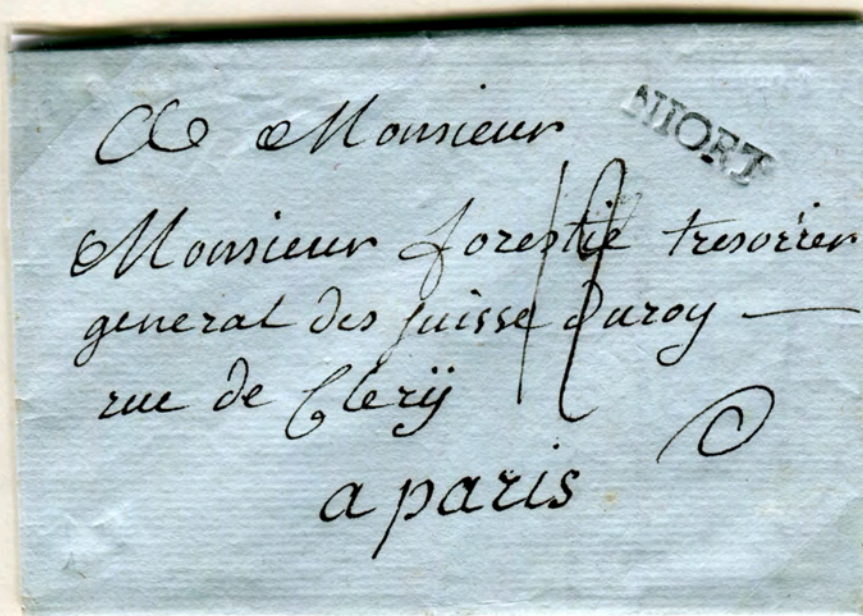 A Monsieur
NIORT
Monsieur forestié tresorier
general des suisse duroy
rue de Clerÿ
a paris
12